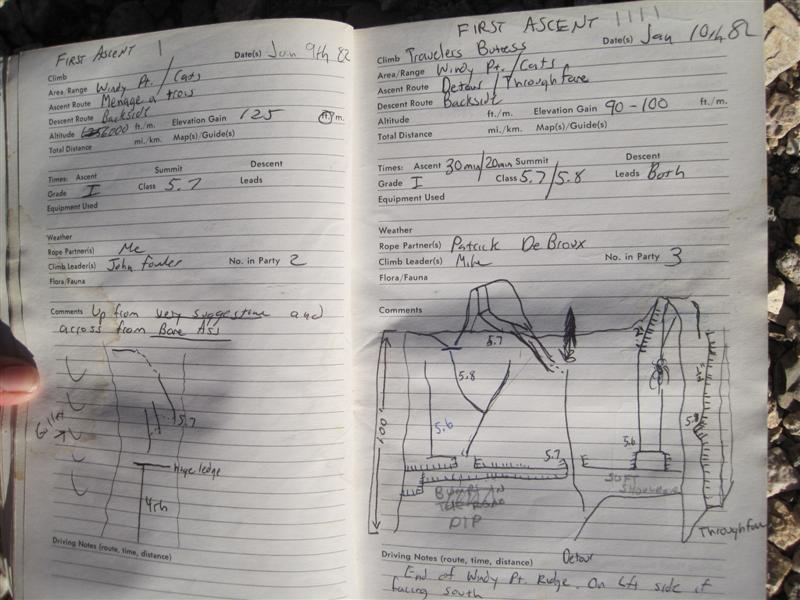 FIRST ASCENT 1
Date(s) Jan 9th 82
Climb
Area/Range Windy Pt. / Cats
Ascent Route Menage a trois
Descent Route Backside
Altitude 6000 ft./m. Elevation Gain 125 ft./m.
Total Distance mi./km. Map(s)/Guide(s)
Times: Ascent Summit Descent
Grade I Class 5.7 Leads
Equipment Used
Weather
Rope Partner(s) Me
Climb Leader(s) John Fowler No. in Party 2
Flora/Fauna
Comments Up from very suggestive and
across from Bare Ass
5.7
Gulley
Huge ledge
4th
Driving Notes (route, time, distance)
FIRST ASCENT 1111
Date(s) Jan 10th 82
Climb Travelers Butress
Area/Range Windy Pt. / Cats
Ascent Route Detour / Throughfare
Descent Route Backside
Altitude ft./m. Elevation Gain 90-100 ft./m.
Total Distance mi./km. Map(s)/Guide(s)
Times: Ascent 30 min/20 min Summit Descent
Grade I Class 5.7/5.8 Leads Both
Equipment Used
Weather
Rope Partner(s) Patrick DeBroux
Climb Leader(s) Mike No. in Party 3
Flora/Fauna
Comments
5.7
5.8
5.6
100'
5.7
5.6
5.8
BUMPS IN
THE ROAD
DIP
SOFT
SHOULDER
Throughfare
Detour
Driving Notes (route, time, distance)
End of Windy Pt. Ridge. On left side if
facing south